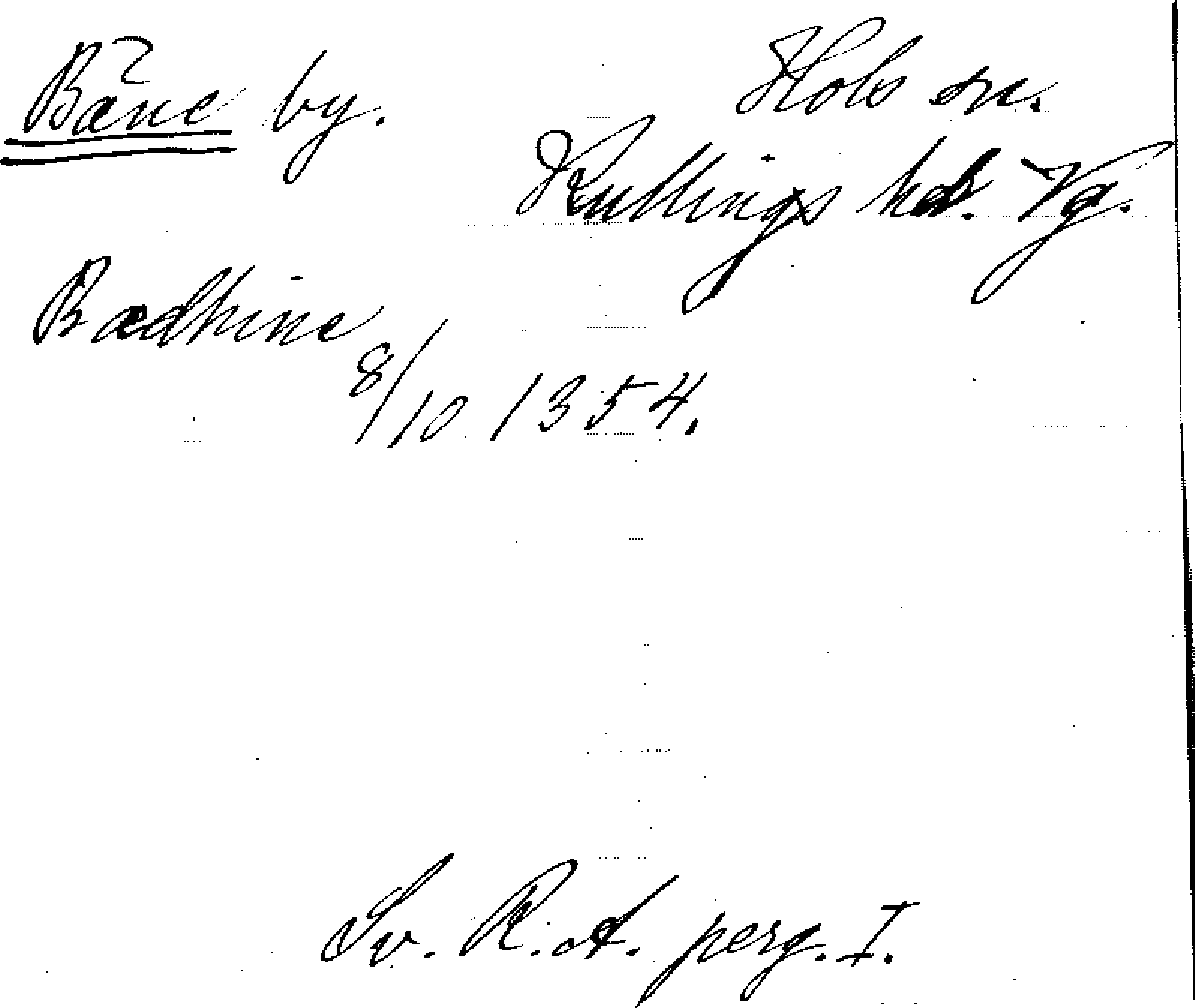 Bäne by. Hols sn.
Kullings hd. Vg.
Bædhine
8/10 1354.
Sv. R. A. perg. I.